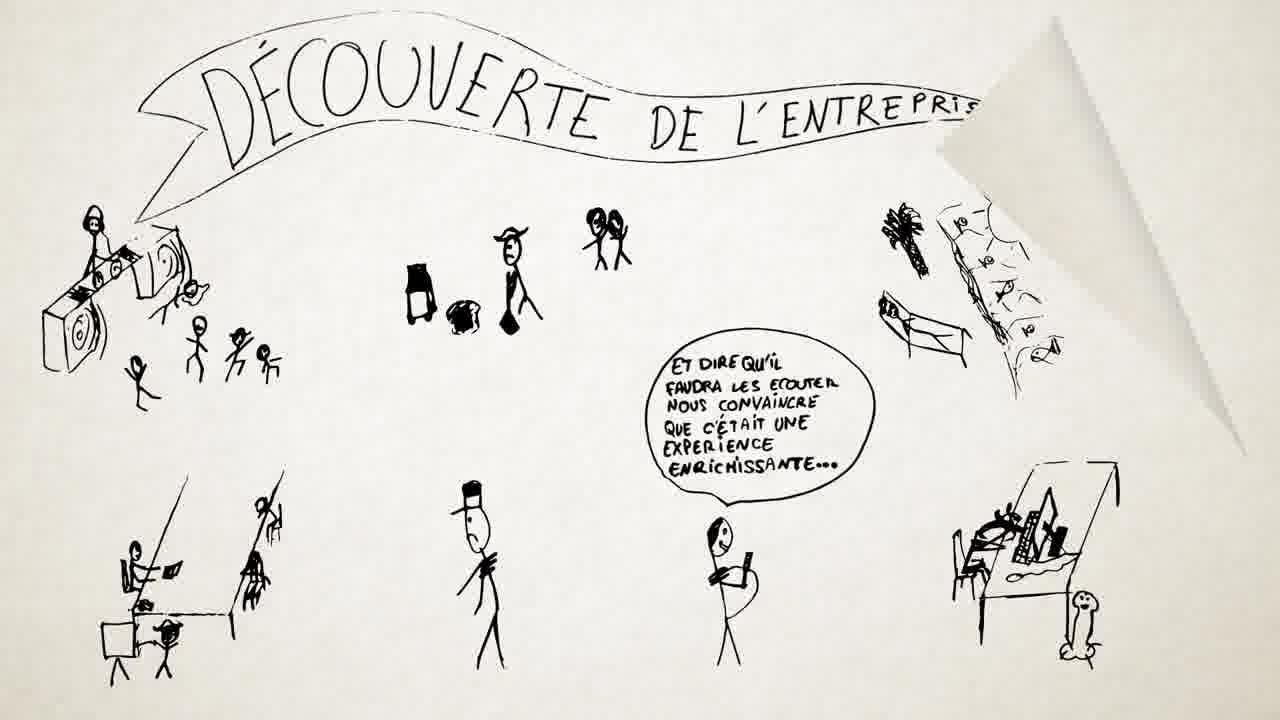 DÉCOUVERTE DE L'ENTREPRIS
ET DIRE QU'IL
FAUDRA LES ECOUTER
NOUS CONVAINCRE
QUE C'ÉTAIT UNE
EXPERIENCE
ENRICHISSANTE...